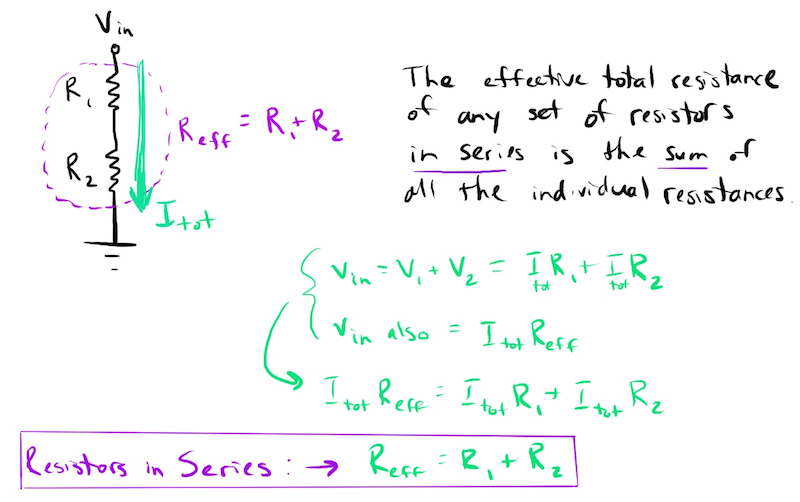 Vin
R₁
R₂
Reff = R₁ + R₂
Itot
The effective total resistance
of any set of resistors
in series is the sum of
all the individual resistances.
Vin = V₁ + V₂ = Itot R₁ + Itot R₂
Vin also = Itot Reff
Itot Reff = Itot R₁ + Itot R₂
Resistors in Series: → Reff = R₁ + R₂